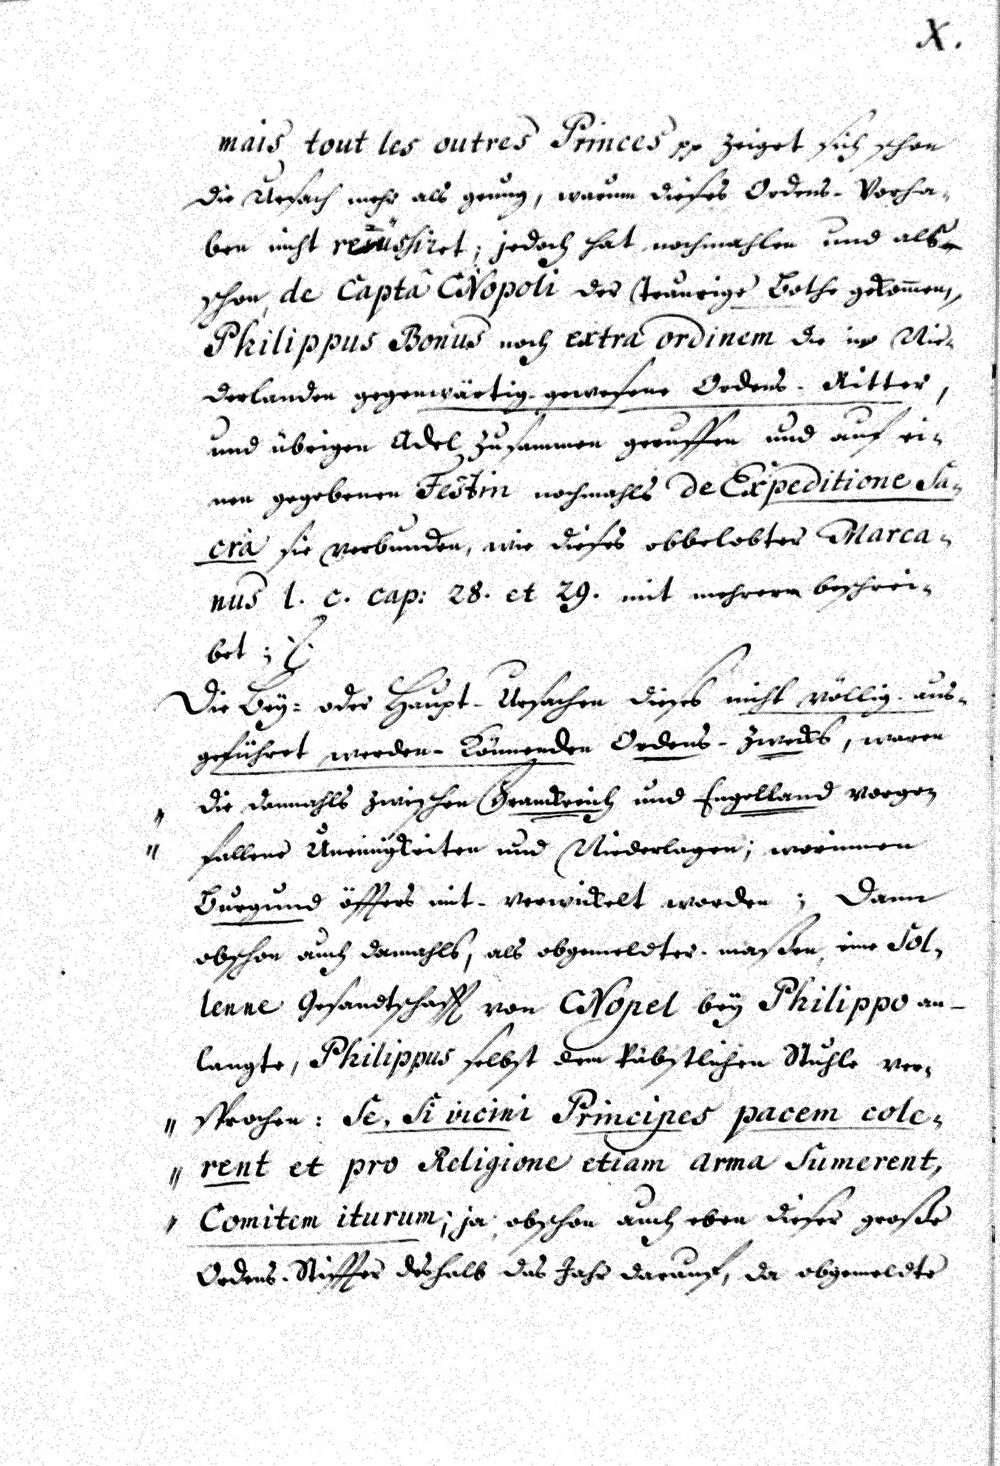 X.
mais tout les outres Princes pp zeiget sich schon
die Ursach mehr als genug, warum dieses Ordens-Vorha-
ben nicht reüssiret; jedoch hat nochmahlen und als
schon de Capta CNopoli der traurige Bothe gekommen,
Philippus Bonus noch extra ordinem die in Nie-
derlanden gegenwärtig-gewesene Ordens-Ritter,
und übrigen Adel zusammen geruffen und auf ei-
nen gegebenen Festin nochmahls de Expeditione Sa-
cra sie verbunden, wie dieses obbelobter Marca-
nus l. c. cap: 28. et 29. mit mehrern beschrei-
bet;
Die Bey- oder Haupt-Ursachen dieses nicht völlig-aus-
geführet werden-könnenden Ordens-Zwecks, waren
" die damahls zwischen Franckreich und Engelland vorge-
" fallene Uneinigkeiten und Niederlagen; worinnen
Burgund öffters mit-verwickelt worden; Dann
obschon auch damahls, als obgemeldter-maßen, eine Sol-
lenne Gesandtschafft von CNopel bey Philippo an-
langte, Philippus selbst dem Päbstlichen Stuhle ver-
" sprochen: Se, Si vicini Principes pacem cole-
" rent et pro Religione etiam arma Sumerent,
" Comitem iturum; ja obschon auch eben dieser große
Ordens-Stiffter deshalb das Jahr darauf, da obgemeldte